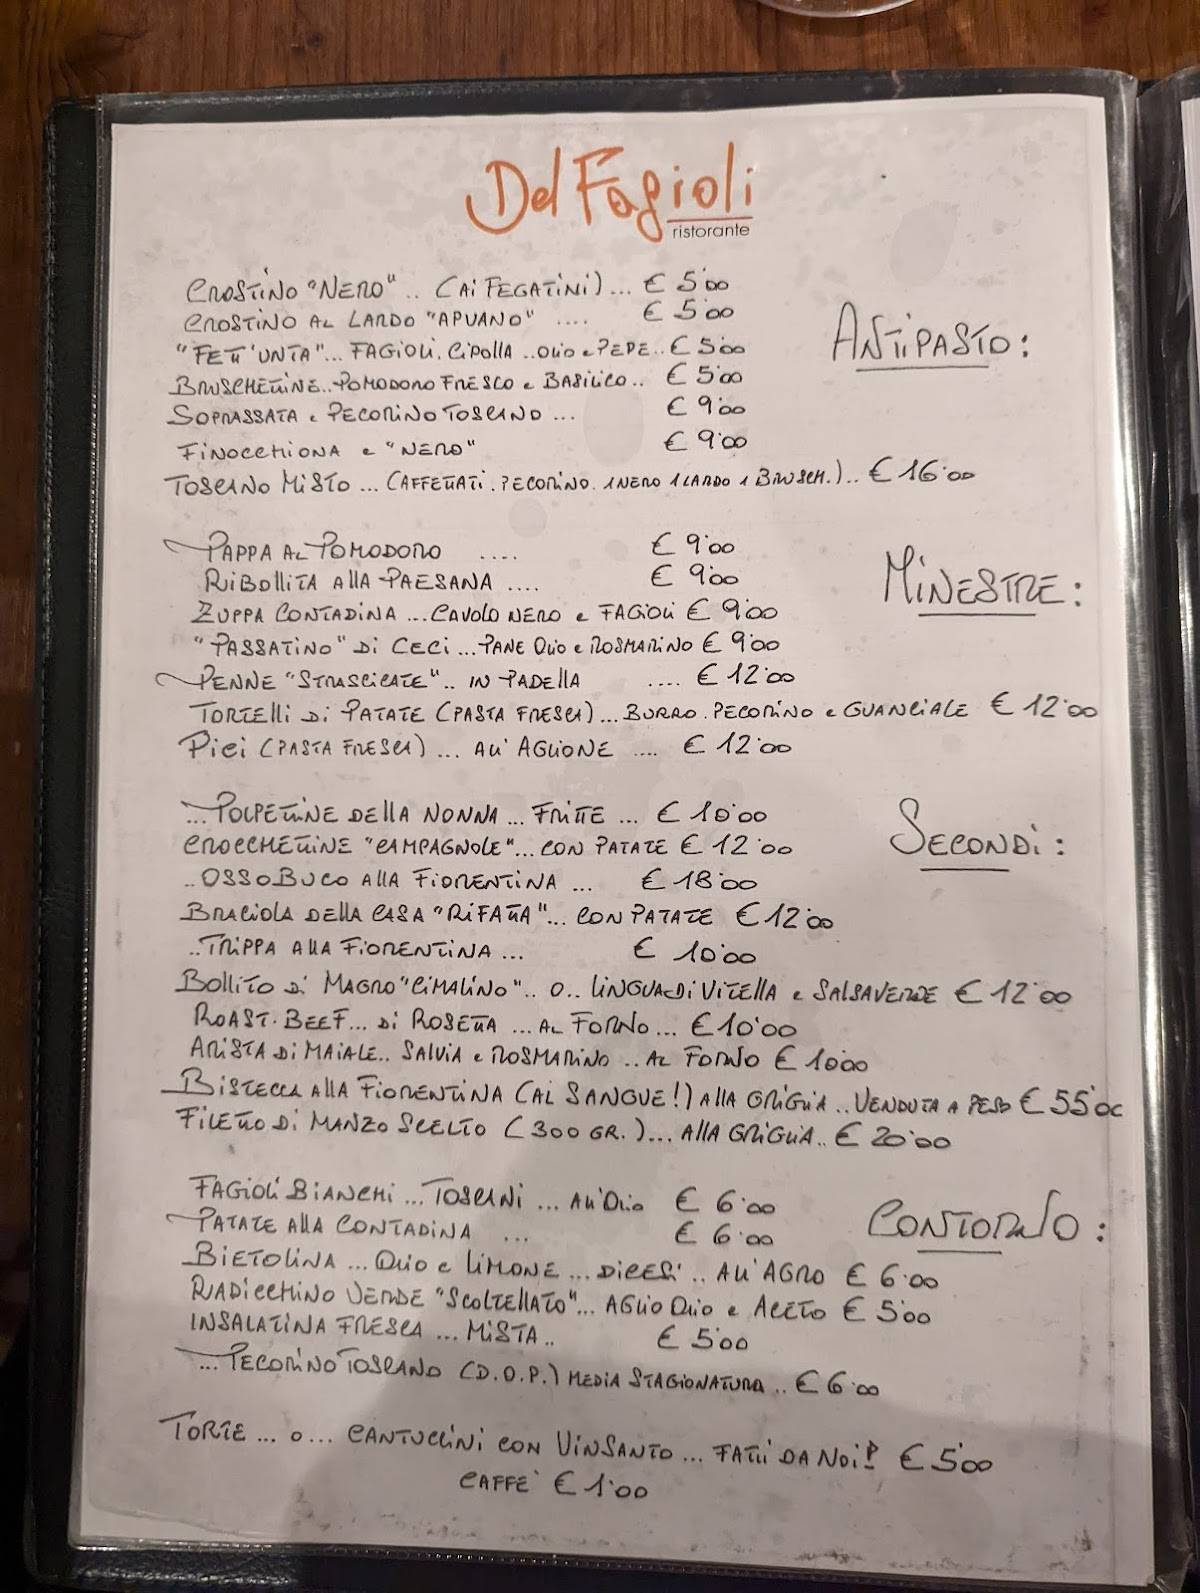 Del Fagioli
ristorante
CROSTINO "NERO" .. (AI FEGATINI) ... € 5.00
CROSTINO AL LARDO "APUANO" .... € 5.00
ANTIPASTO:
"FETT'UNTA" ... FAGIOLI. CIPOLLA .. OLIO e PEPE .. € 5.00
BRUSCHETTINE .. POMODORO FRESCO e BASILICO .. € 5.00
SOPRASSATA e PECORINO TOSCANO ... € 9.00
FINOCCHIONA e "NERO" € 9.00
TOSCANO MISTO ... (AFFETTATI. PECORINO. 1 NERO 1 LARDO 1 BRUSCH.) .. € 16.00
MINESTRE:
PAPPA AL POMODORO .... € 9.00
RIBOLLITA ALLA PAESANA .... € 9.00
ZUPPA CONTADINA ... CAVOLO NERO e FAGIOLI € 9.00
"PASSATINO" DI CECI ... PANE OLIO e ROSMARINO € 9.00
PENNE "STRASCICATE" .. IN PADELLA .... € 12.00
TORTELLI DI PATATE (PASTA FRESCA) ... BURRO. PECORINO e GUANCIALE € 12.00
PICI (PASTA FRESCA) ... ALL'AGLIONE .... € 12.00
SECONDI:
... POLPETTINE DELLA NONNA ... FRITTE ... € 10.00
CROCCHETTINE "CAMPAGNOLE" ... CON PATATE € 12.00
.. OSSOBUCO ALLA FIORENTINA ... € 18.00
BRACIOLA DELLA CASA "RIFATTA" ... CON PATATE € 12.00
.. TRIPPA ALLA FIORENTINA ... € 10.00
BOLLITO DI MAGRO "CIMALINO" .. O .. LINGUA DI VITELLA e SALSA VERDE € 12.00
ROAST. BEEF ... DI ROSETTA ... AL FORNO ... € 10.00
ARISTA DI MAIALE .. SALVIA e ROSMARINO .. AL FORNO € 10.00
BISTECCA ALLA FIORENTINA (AL SANGUE!) ALLA GRIGLIA .. VENDUTA A PESO € 55.00
FILETTO DI MANZO SCELTO (300 GR.) ... ALLA GRIGLIA .. € 20.00
CONTORNO:
FAGIOLI BIANCHI ... TOSCANI ... ALL'OLIO € 6.00
PATATE ALLA CONTADINA ... € 6.00
BIETOLINA ... OLIO e LIMONE ... DICESI .. ALL'AGRO € 6.00
RADICCHINO VERDE "SCOLTELLATO" ... AGLIO OLIO e ACETO € 5.00
INSALATINA FRESCA ... MISTA .. € 5.00
... PECORINO TOSCANO (D.O.P.) MEDIA STAGIONATURA .. € 6.00
TORTE ... o ... CANTUCCINI CON VINSANTO ... FATTI DA NOI! € 5.00
CAFFE' € 1.00